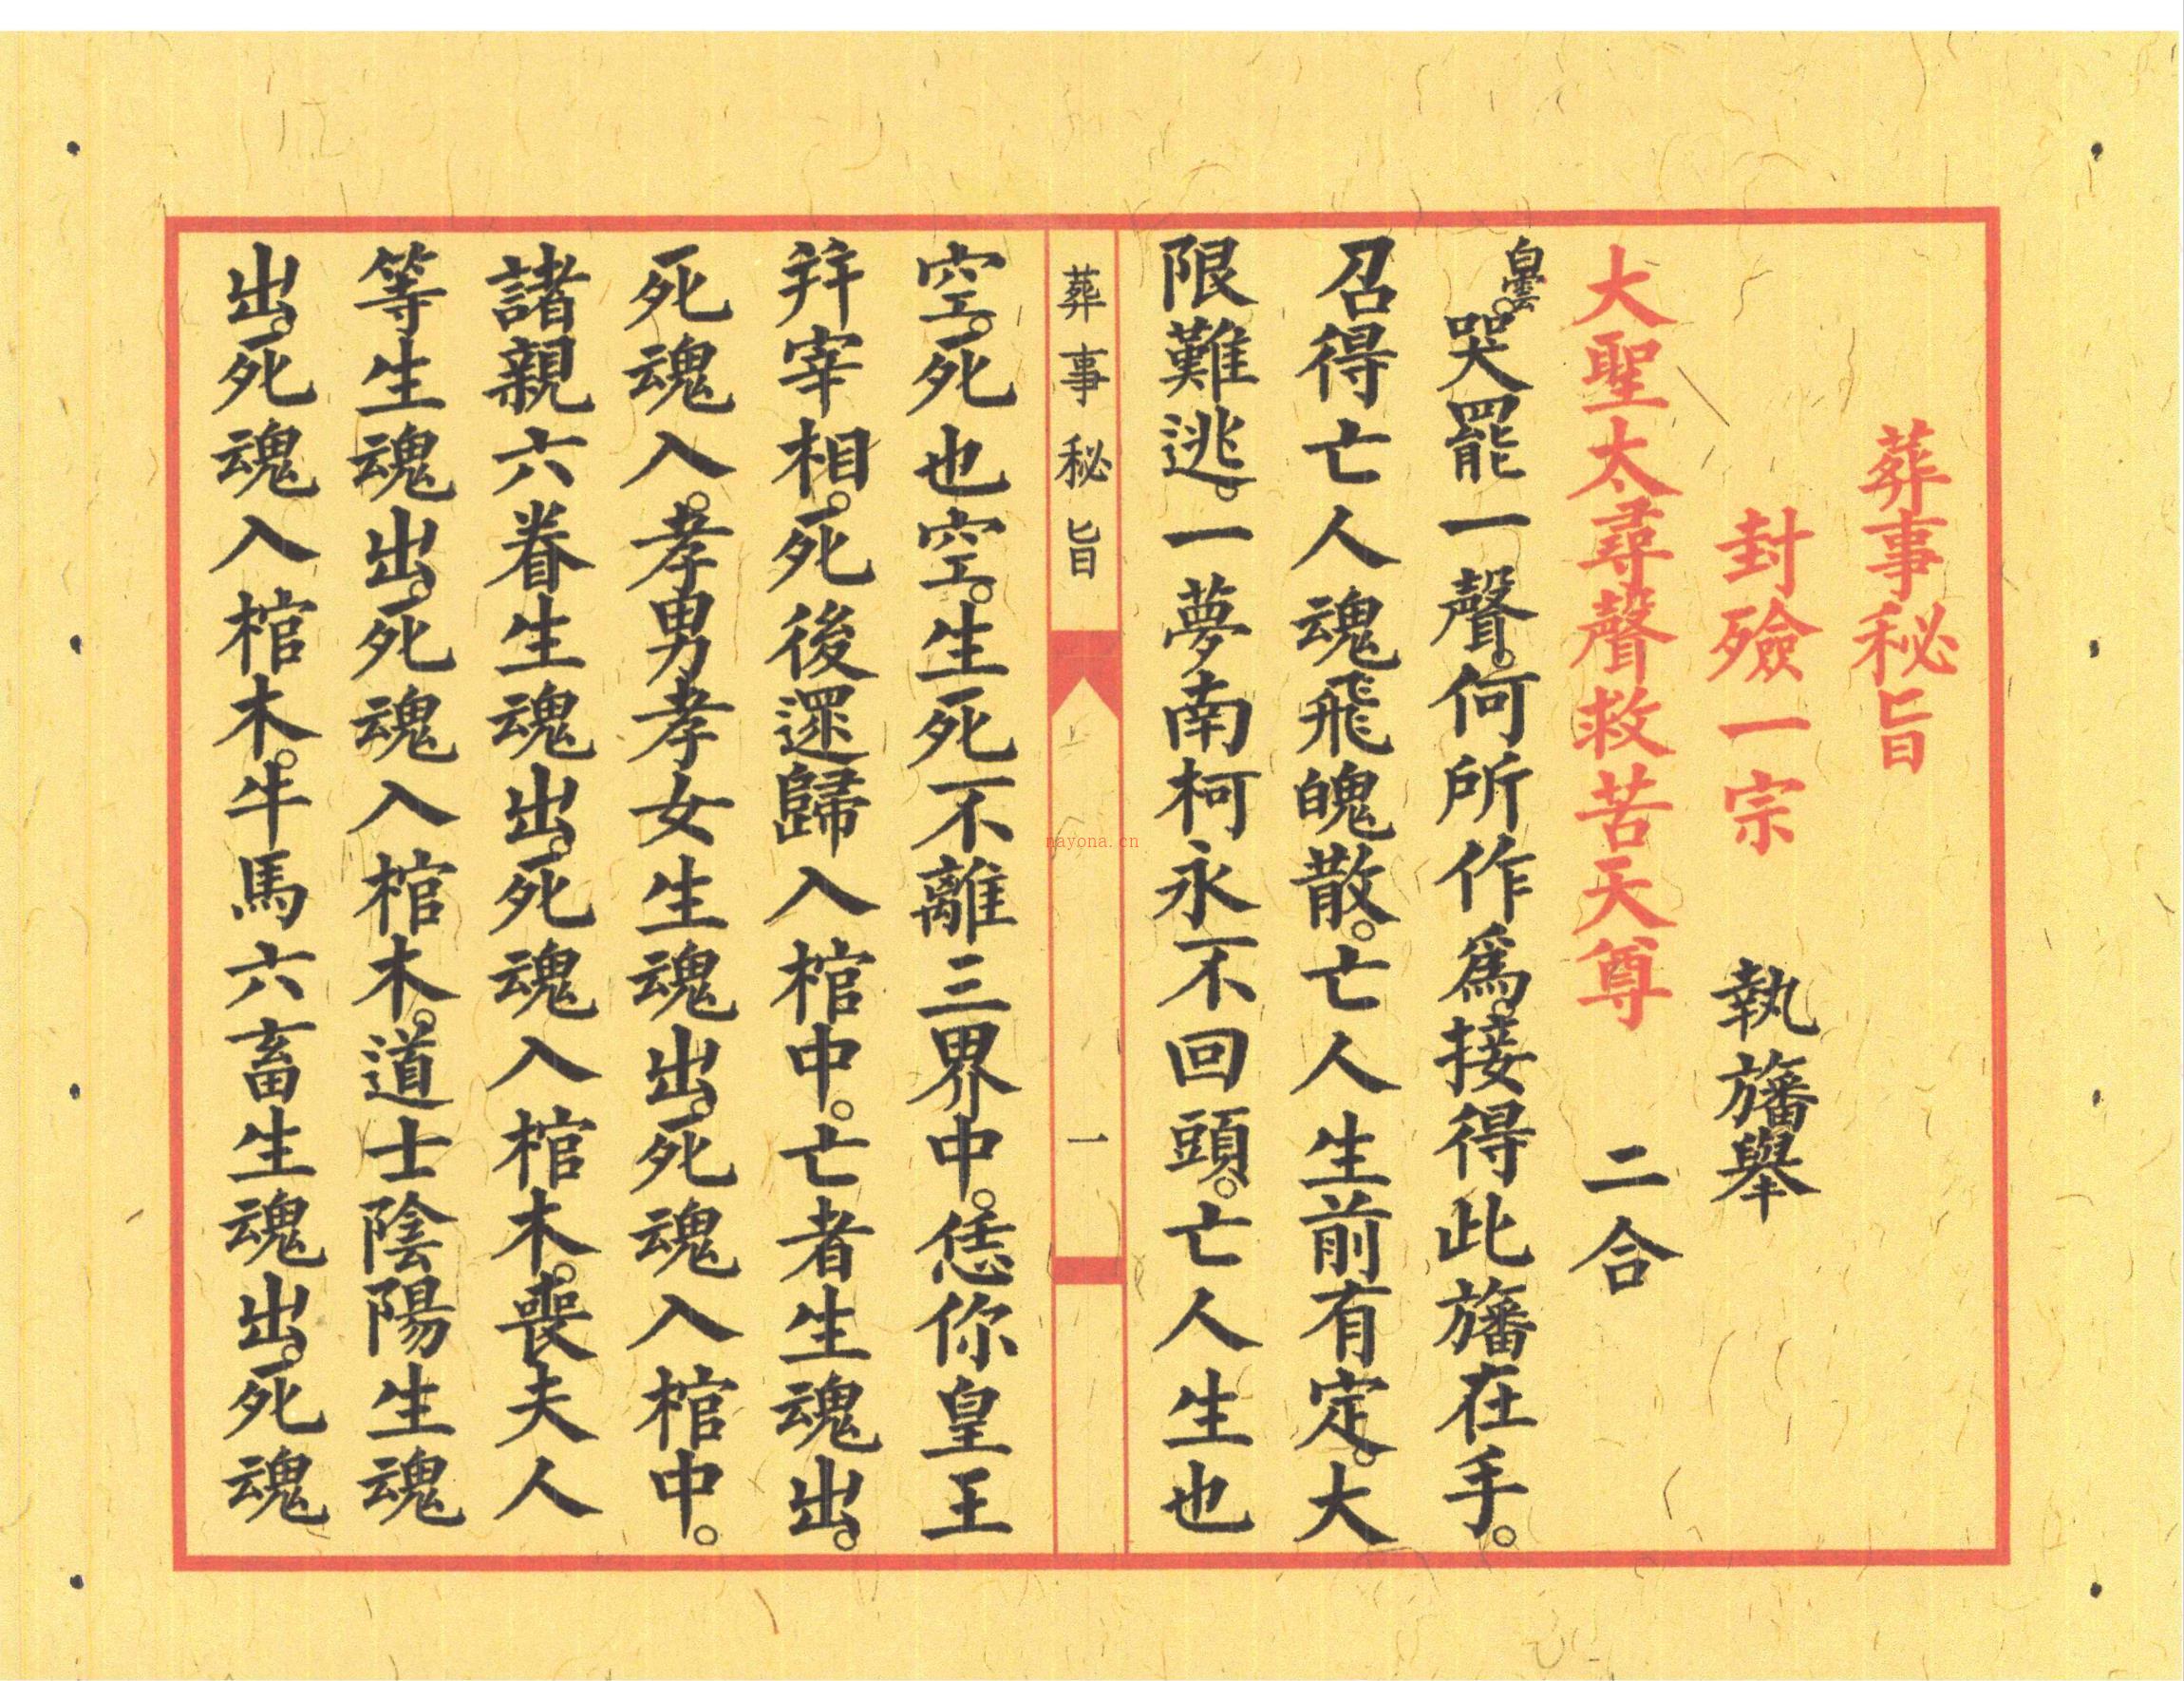 葬事秘旨
封殮一宗　執旛舉
大聖太尋聲救苦天尊　二合
白雲。哭罷一聲。何所作爲。接得此旛在手。
召得亡人魂飛魄散。亡人生前有定。大
限難逃。一夢南柯永不回頭。亡人生也
葬事秘旨　一
nayona.cn
空。死也空。生死不離三界中。恁你皇王
并宰相。死後還歸入棺中。亡者生魂出。
死魂入。孝男孝女生魂出。死魂入棺中。
諸親六眷生魂出。死魂入棺木。喪夫人
等生魂出。死魂入棺木。道士陰陽生魂
出。死魂入棺木。牛馬六畜生魂出。死魂